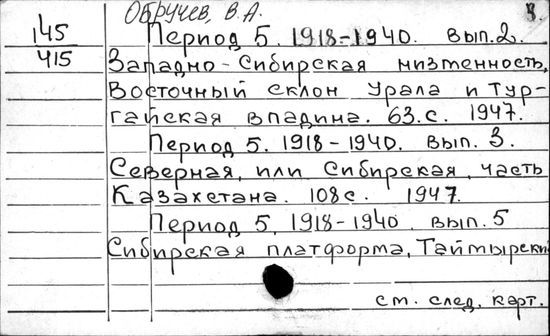 Обручев, В.А. 3.
145 Период 5. 1918-1940. вып. 2.
415 Западно-Сибирская низменность,
Восточный склон Урала и Тур-
гайская впадина. 63.с. 1947.
Период 5. 1918-1940. вып. 3.
Северная, или Сибирская, часть
Казахстана. 108с. 1947.
Период 5. 1918-1940. вып. 5
Сибирская платформа, Таймырский
см. след. карт.